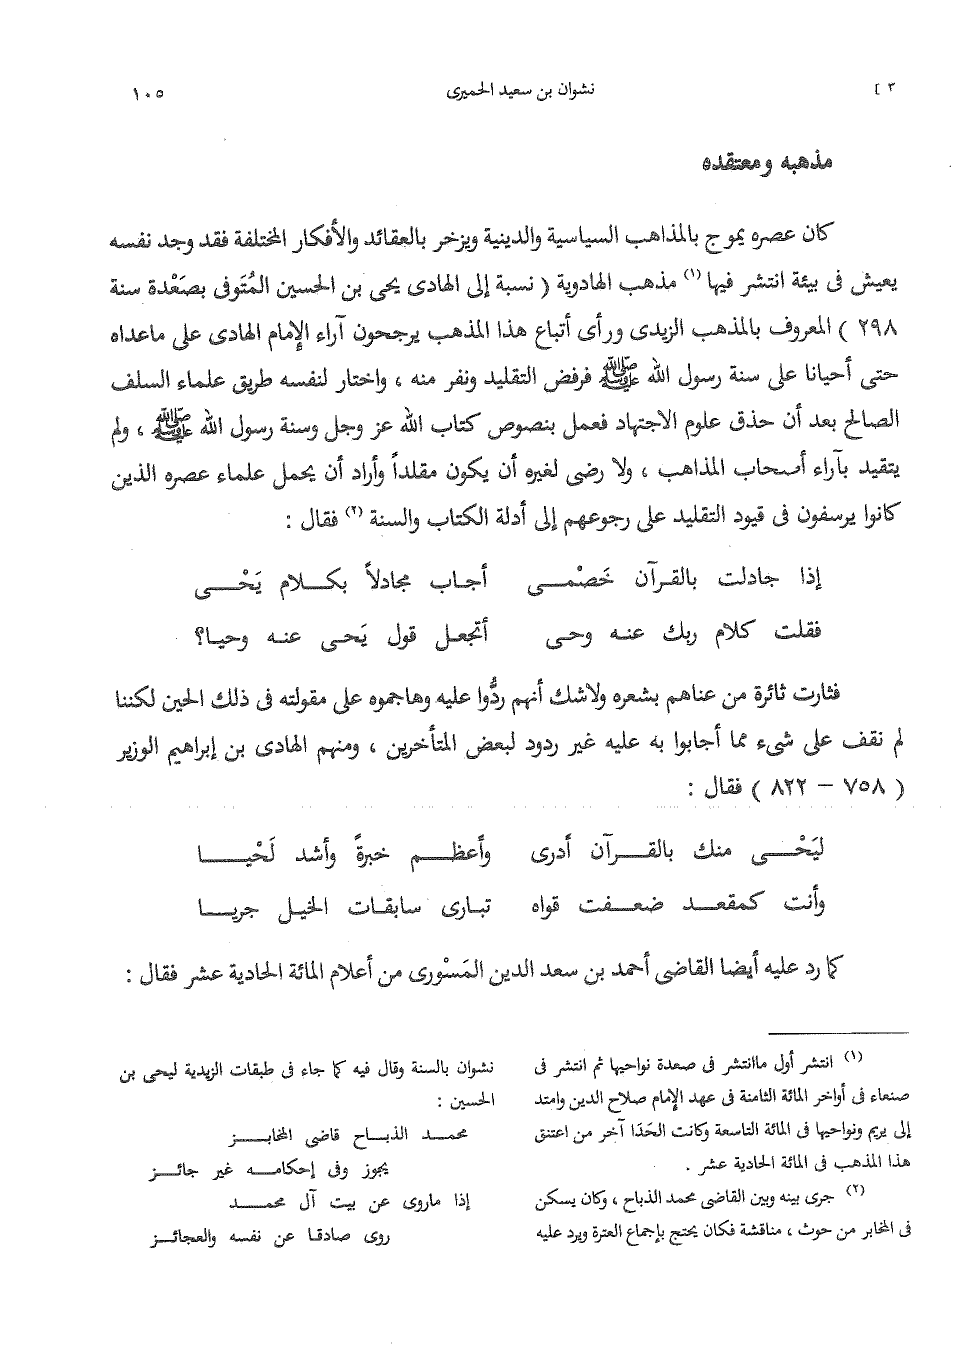 ٣ ]
نشوان بن سعيد الحميرى
١٠٥
مذهبه ومعتقده
كان عصره يموج بالمذاهب السياسية والدينية ويزخر بالعقائد والأفكار المختلفة فقد وجد نفسه
يعيش فى بيئة انتشر فيها (١) مذهب الهادوية ( نسبة إلى الهادى يحى بن الحسين المُتَوفى بصَعْدة سنة
٢٩٨ ) المعروف بالمذهب الزيدى ورأى أتباع هذا المذهب يرجحون آراء الإمام الهادى على ماعداه
حتى أحيانا على سنة رسول الله ﷺ فرفض التقليد ونفر منه ، واختار لنفسه طريق علماء السلف
الصالح بعد أن حذق علوم الاجتهاد فعمل بنصوص كتاب الله عز وجل وسنة رسول الله ﷺ ، ولم
يتقيد بآراء أصحاب المذاهب ، ولا رضى لغيره أن يكون مقلداً وأراد أن يحمل علماء عصره الذين
كانوا يرسفون فى قيود التقليد على رجوعهم إلى أدلة الكتاب والسنة (٢) فقال :
إذا جادلت بالقرآن خَصْمـــى أجـاب مجادلاً بكـــلام يَحْـــــى
فقلت كلام ربك عنـه وحـى أتجعـل قول يَحـى عنـه وحيـا؟
فثارت ثائرة من عناهم بشعره ولاشك أنهم ردُّوا عليه وهاجموه على مقولته فى ذلك الحين لكننا
لم نقف على شىء مما أجابوا به عليه غير ردود لبعض المتأخرين ، ومنهم الهادى بن إبراهيم الوزير
( ٧٥٨ – ٨٢٢ ) فقال :
ليَحْــــى منك بالقــــرآن أدرى وأعظـــم خبرةً وأشد لَحْيـــــا
وأنت كمقعـــد ضعــفت قواه تبـارى سابقـات الخيـل جريـــا
كما رد عليه أيضا القاضى أحمد بن سعد الدين المَسْورى من أعلام المائة الحادية عشر فقال :
(١) انتشر أول ماانتشر فى صعدة نواحيها ثم انتشر فى
صنعاء فى أواخر المائة الثامنة فى عهد الإمام صلاح الدين وامتد
إلى يريم ونواحيها فى المائة التاسعة وكانت الحَدَا آخر من اعتنق
هذا المذهب فى المائة الحادية عشر .
(٢) جرى بينه وبين القاضى محمد الذباح ، وكان يسكن
فى المخابر من حوث ، مناقشة فكان يحتج بإجماع العترة ويرد عليه
نشوان بالسنة وقال فيه كما جاء فى طبقات الزيدية ليحى بن
الحسين :
محمـد الذبـاح قاضى المخابـــز
يجوز وفى إحكامــه غير جائـــز
إذا ماروى عن بيت آل محمـــد
روى صادقـا عن نفسه والعجائـــز